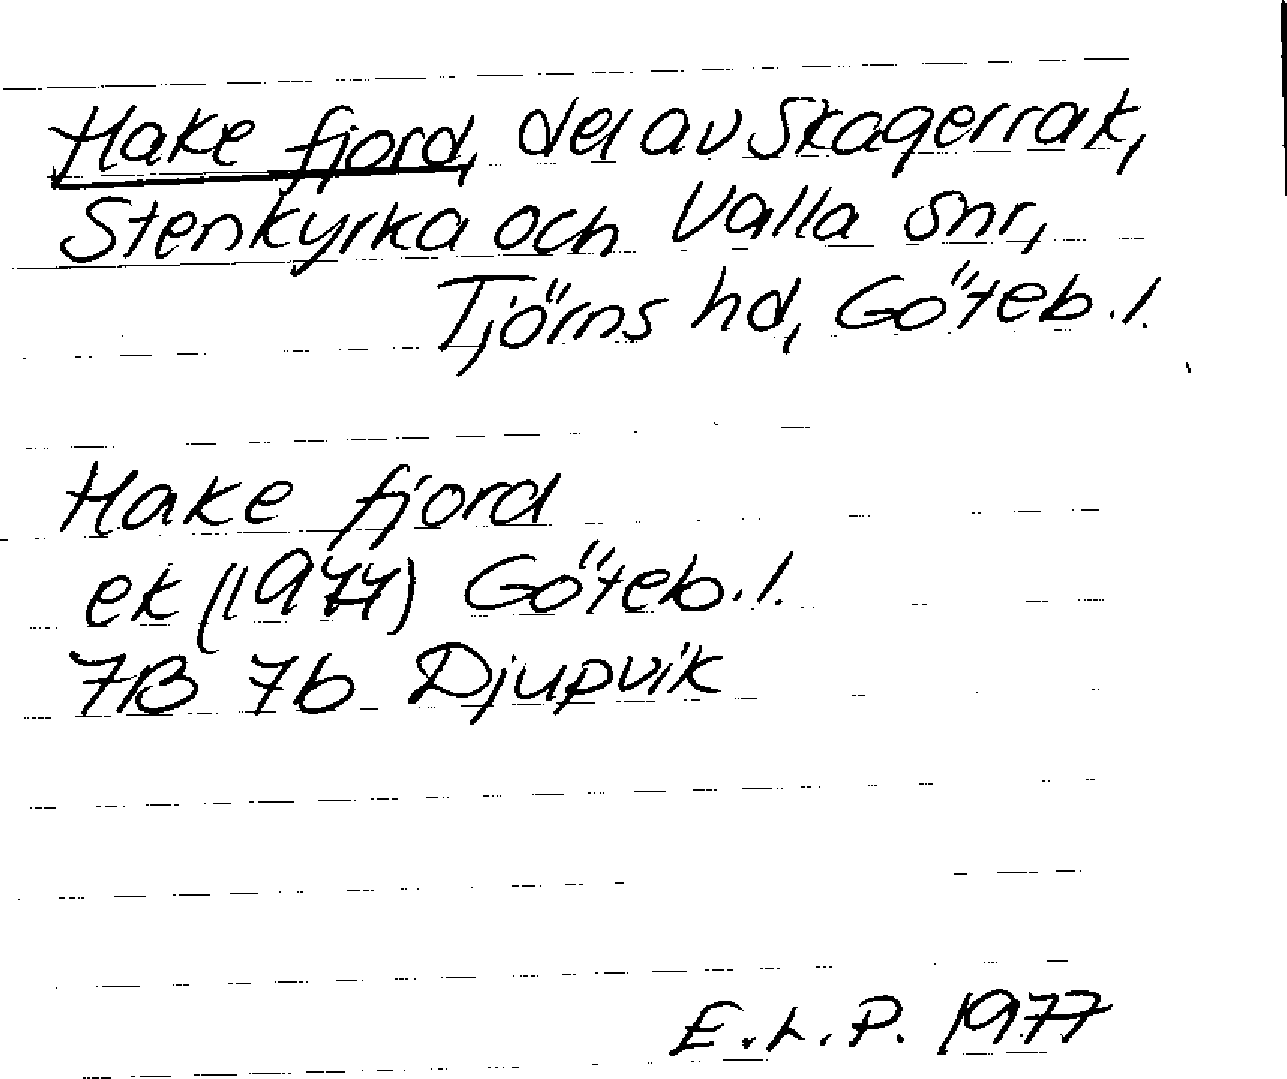 Hake fjord, del av Skagerrak,
Stenkyrka och Valla snr,
Tjörns hd, Göteb. l.
Hake fjord
ek (1977) Göteb. l.
7B 7b Djupvik
E.L.P. 1977